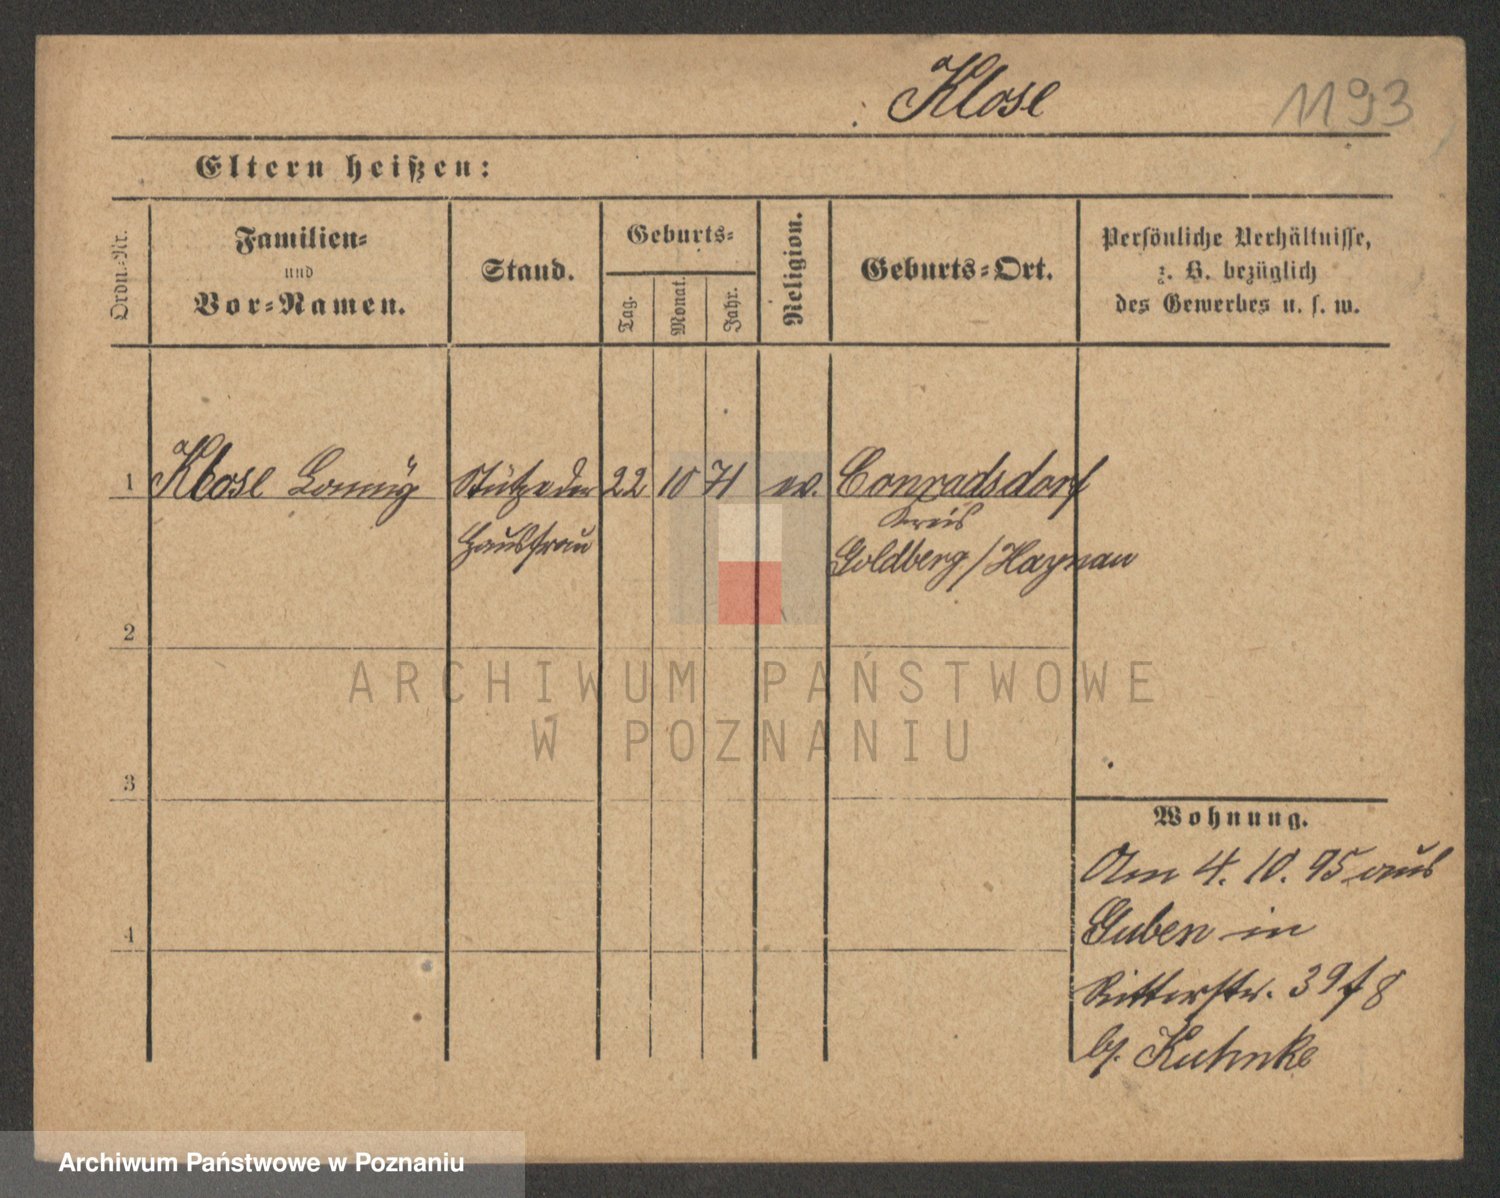 Klose
1193
Eltern heißen:
Ordn.-Nr.
Familien-
und
Vor-Namen.
Stand.
Geburts-
Tag.
Monat.
Jahr.
Religion.
Geburts-Ort.
Persönliche Verhältnisse,
z. B. bezüglich
des Gewerbes u. s. w.
1 Klose Stütze der 22 10 71 ev. Conradsdorf
Hausfrau
Kreis
Goldberg/Haynau
2
3
4
Wohnung.
Am 4. 10. 95 aus
Guben in
Ritterstr. 39
b. Kuhnke
ARCHIWUM PAŃSTWOWE
W POZNANIU
Archiwum Państwowe w Poznaniu